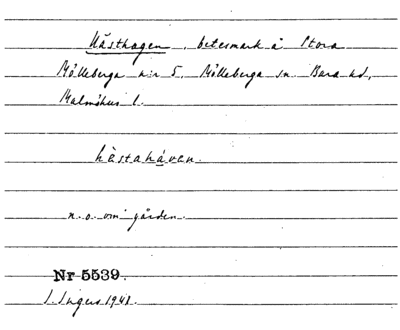 Hästhagen, betesmark å Stora
Mölleberga n:r 5, Mölleberga sn. Bara hd,
Malmöhus l.
hèstahá̱ven.
n.o. om gården.
Nr 5539.
I. Ingers 1941.